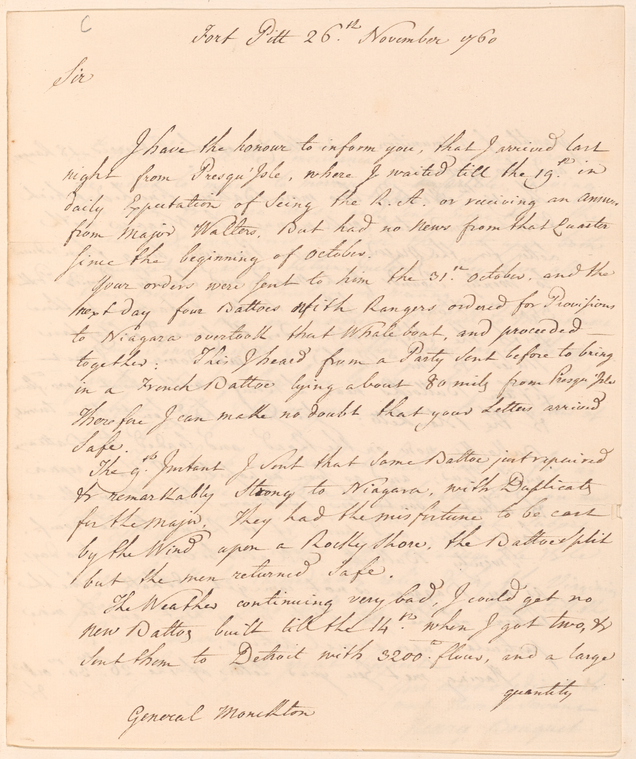 C
Fort Pitt 26.th November 1760
Sir
I have the honour to inform you, that I arrived last
night from Presqu'Isle, where I waited till the 19.th in
daily Expectation of Seing the R. A. or receiving an answer
from Major Walters, But had no News from that Quarter
Since the beginning of October.
Your orders were sent to him the 31.st October. and the
next day four Battoes with Rangers ordered for Provisions
to Niagara overtook that Whale boat, and proceeded
together: This I heard from a Party Sent before to bring
in a French Battoe lying about 80 miles from Presqu'Isle
Therefore I can make no doubt that your Letters arrived
Safe.
The 9.th Instant I Sent that Same Battoe just repaired
& remarkably Strong to Niagara, with Duplicats
for the Major. They had the misfortune to be cast
by the Wind upon a Rocky Shore. the Battoe split
but the men returned Safe.
The Weather continuing very bad, I could get no
new Battoes built till the 14.th when I got two, &
Sent them to Detroit with 3200 flour, and a large
quantity
General Monckton